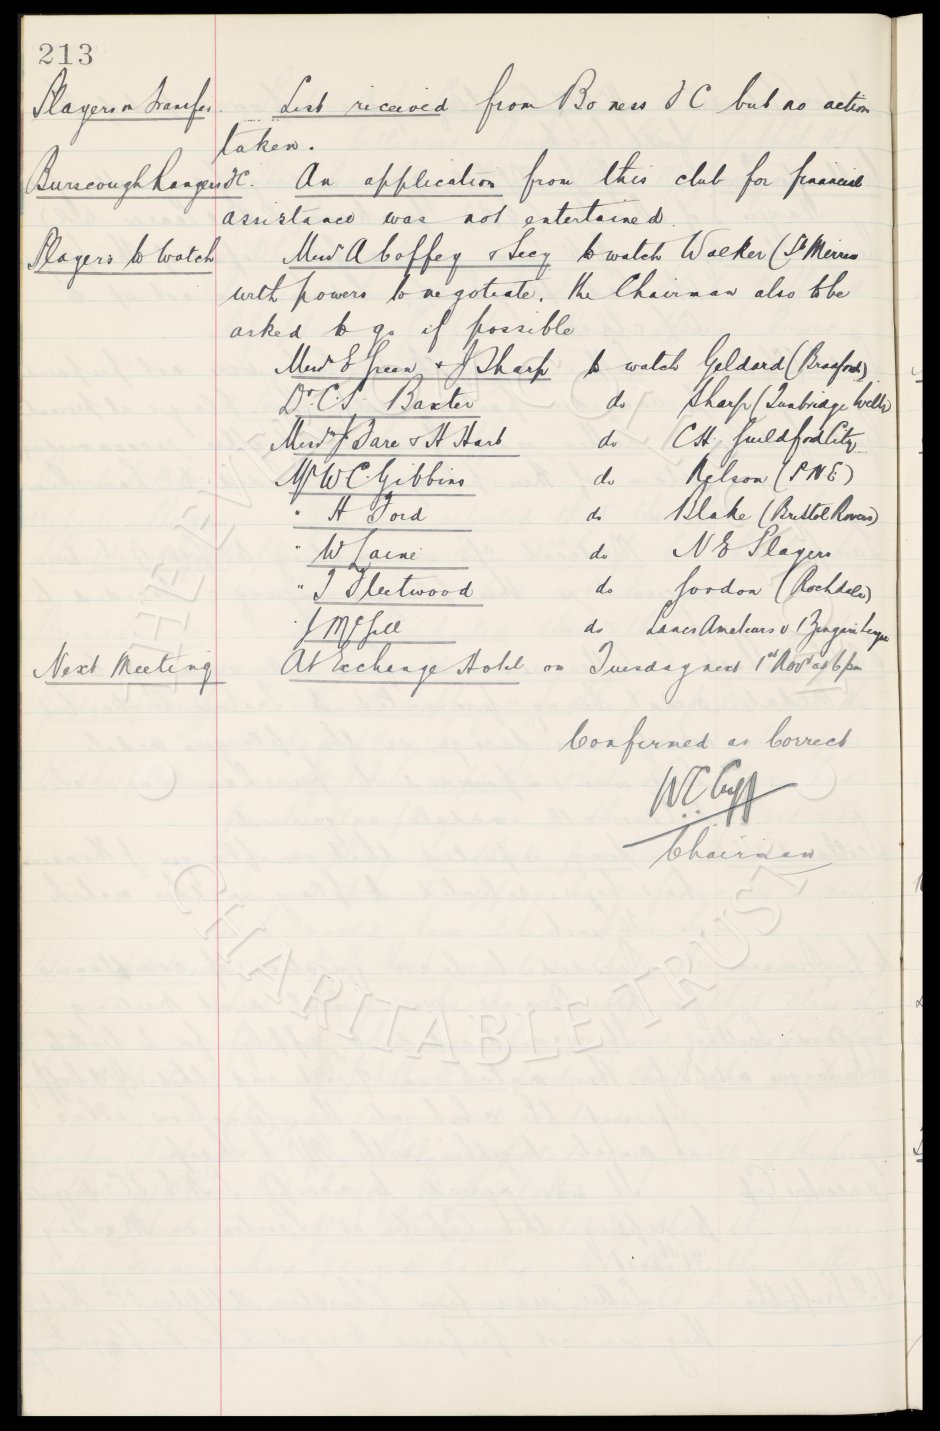 213
Players on Transfer. List received from Bo ness F C but no action
taken.
Burscough Rangers F.C. An application from this club for financial
assistance was not entertained
Players to Watch Messrs A Coffey & Secy to watch Walker (St Mirren
with powers to negotiate. The Chairman also to be
asked to go if possible
Messrs E Green & J Sharp to watch Geldard (Bradford)
Dr. C.S. Baxter do Sharp (Tunbridge Wells)
Messrs J Fare & H Hart do C.H. Guildford City
Mr W C. Gibbins do Nelson (P N E)
" H Ford do Blake (Bristol Rovers)
" W Laine do N E Players
" T Fleetwood do Gordon (Rochdale)
J McGill do Lancs Amateurs v League
Next Meeting At Exchange Hotel on Tuesday next 1st Novr at 6 pm
Confirmed as Correct
W C Cuff
Chairman
THE EVERTON COLLECTION
CHARITABLE TRUST